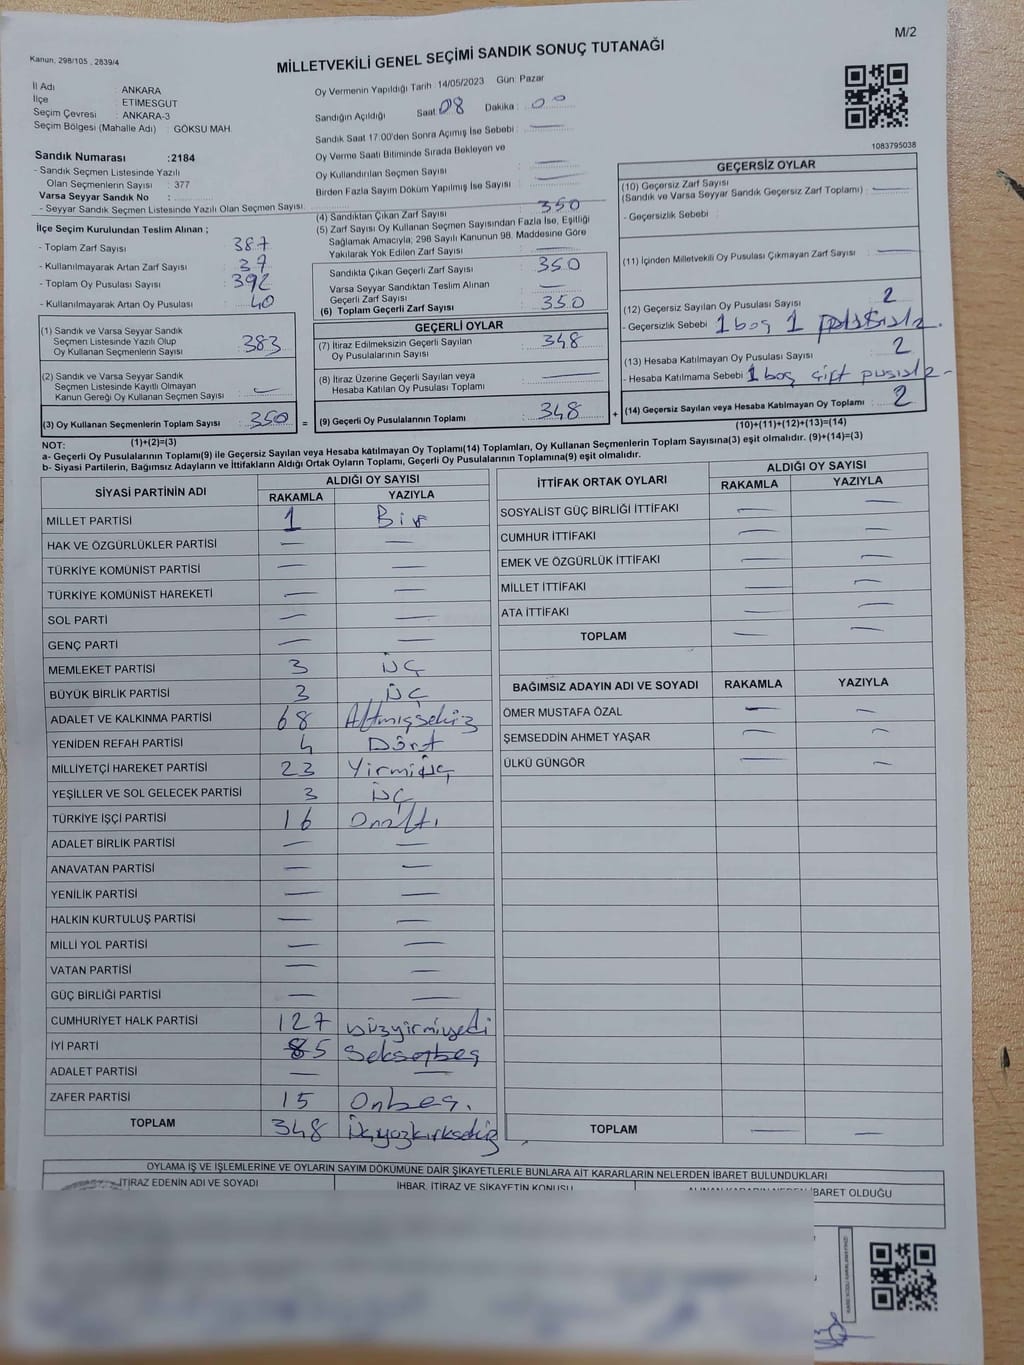 M/2
Kanun, 298/105 , 2839/4
MİLLETVEKİLİ GENEL SEÇİMİ SANDIK SONUÇ TUTANAĞI
İl Adı : ANKARA
İlçe : ETİMESGUT
Seçim Çevresi : ANKARA-3
Seçim Bölgesi (Mahalle Adı) : GÖKSU MAH.
Sandık Numarası :2184
- Sandık Seçmen Listesinde Yazılı
Olan Seçmenlerin Sayısı : 377
Varsa Seyyar Sandık No :
- Seyyar Sandık Seçmen Listesinde Yazılı Olan Seçmen Sayısı:
Oy Vermenin Yapıldığı Tarih : 14/05/2023 Gün: Pazar
Sandığın Açıldığı Saat: 08 Dakika : 00
Sandık Saat 17:00'den Sonra Açımış İse Sebebi : —
Oy Verme Saati Bitiminde Sırada Bekleyen ve
Oy Kullandırılan Seçmen Sayısı : —
Birden Fazla Sayım Döküm Yapılmış İse Sayısı : —
1083795038
İlçe Seçim Kurulundan Teslim Alınan ;
- Toplam Zarf Sayısı : 387
- Kullanılmayarak Artan Zarf Sayısı : 37
- Toplam Oy Pusulası Sayısı : 392
- Kullanılmayarak Artan Oy Pusulası : 40
(1) Sandık ve Varsa Seyyar Sandık
Seçmen Listesinde Yazılı Olup
Oy Kullanan Seçmenlerin Sayısı : 383
(2) Sandık ve Varsa Seyyar Sandık
Seçmen Listesinde Kayıtlı Olmayan
Kanun Gereği Oy Kullanan Seçmen Sayısı : —
(3) Oy Kullanan Seçmenlerin Toplam Sayısı : 350 =
(1)+(2)=(3)
(4) Sandıktan Çıkan Zarf Sayısı : 350
(5) Zarf Sayısı Oy Kullanan Seçmen Sayısından Fazla İse, Eşitliği
Sağlamak Amacıyla, 298 Sayılı Kanunun 98. Maddesine Göre
Yakılarak Yok Edilen Zarf Sayısı : —
Sandıkta Çıkan Geçerli Zarf Sayısı : 350
Varsa Seyyar Sandıktan Teslim Alınan
Geçerli Zarf Sayısı : —
(6) Toplam Geçerli Zarf Sayısı : 350
GEÇERLİ OYLAR
(7) İtiraz Edilmeksizin Geçerli Sayılan
Oy Pusulalarının Sayısı : 348
(8) İtiraz Üzerine Geçerli Sayılan veya
Hesaba Katılan Oy Pusulası Toplamı : —
(9) Geçerli Oy Pusulalarının Toplamı : 348 +
GEÇERSİZ OYLAR
(10) Geçersiz Zarf Sayısı
(Sandık ve Varsa Seyyar Sandık Geçersiz Zarf Toplamı) : —
- Geçersizlik Sebebi :
(11) İçinden Milletvekili Oy Pusulası Çıkmayan Zarf Sayısı : —
(12) Geçersiz Sayılan Oy Pusulası Sayısı : 2
- Geçersizlik Sebebi : 1 boş 1
(13) Hesaba Katılmayan Oy Pusulası Sayısı : 2
- Hesaba Katılmama Sebebi : 1 boş çift
(14) Geçersiz Sayılan veya Hesaba Katılmayan Oy Toplamı : 2
(10)+(11)+(12)+(13)=(14)
NOT:
a- Geçerli Oy Pusulalarının Toplamı(9) ile Geçersiz Sayılan veya Hesaba Katılmayan Oy Toplamı(14) Toplamları, Oy Kullanan Seçmenlerin Toplam Sayısına(3) eşit olmalıdır. (9)+(14)=(3)
b- Siyasi Partilerin, Bağımsız Adayların ve İttifakların Aldığı Ortak Oyların Toplamı, Geçerli Oy Pusulalarının Toplamına(9) eşit olmalıdır.
SİYASİ PARTİNİN ADI ALDIĞI OY SAYISI
RAKAMLA YAZIYLA
MİLLET PARTİSİ 1 Bir
HAK VE ÖZGÜRLÜKLER PARTİSİ — —
TÜRKİYE KOMÜNİST PARTİSİ — —
TÜRKİYE KOMÜNİST HAREKETİ — —
SOL PARTİ — —
GENÇ PARTİ — —
MEMLEKET PARTİSİ 3 üç
BÜYÜK BİRLİK PARTİSİ 3 üç
ADALET VE KALKINMA PARTİSİ 68 Altmışsekiz
YENİDEN REFAH PARTİSİ 4 Dört
MİLLİYETÇİ HAREKET PARTİSİ 23 Yirmiüç
YEŞİLLER VE SOL GELECEK PARTİSİ 3 üç
TÜRKİYE İŞÇİ PARTİSİ 16 Onaltı
ADALET BİRLİK PARTİSİ — —
ANAVATAN PARTİSİ — —
YENİLİK PARTİSİ — —
HALKIN KURTULUŞ PARTİSİ — —
MİLLİ YOL PARTİSİ — —
VATAN PARTİSİ — —
GÜÇ BİRLİĞİ PARTİSİ — —
CUMHURİYET HALK PARTİSİ 127 yüzyirmiyedi
İYİ PARTİ 85 Seksenbeş
ADALET PARTİSİ — —
ZAFER PARTİSİ 15 Onbeş.
TOPLAM 348 üçyüzkırksekiz
İTTİFAK ORTAK OYLARI ALDIĞI OY SAYISI
RAKAMLA YAZIYLA
SOSYALİST GÜÇ BİRLİĞİ İTTİFAKI — —
CUMHUR İTTİFAKI — —
EMEK VE ÖZGÜRLÜK İTTİFAKI — —
MİLLET İTTİFAKI — —
ATA İTTİFAKI — —
TOPLAM — —
BAĞIMSIZ ADAYIN ADI VE SOYADI RAKAMLA YAZIYLA
ÖMER MUSTAFA ÖZAL — —
ŞEMSEDDİN AHMET YAŞAR — —
ÜLKÜ GÜNGÖR — —
TOPLAM — —
OYLAMA İŞ VE İŞLEMLERİNE VE OYLARIN SAYIM DÖKÜMÜNE DAİR ŞİKAYETLERLE BUNLARA AİT KARARLARIN NELERDEN İBARET BULUNDUKLARI
İTİRAZ EDENİN ADI VE SOYADI İHBAR, İTİRAZ VE ŞİKAYETİN KONUSU İBARET OLDUĞU